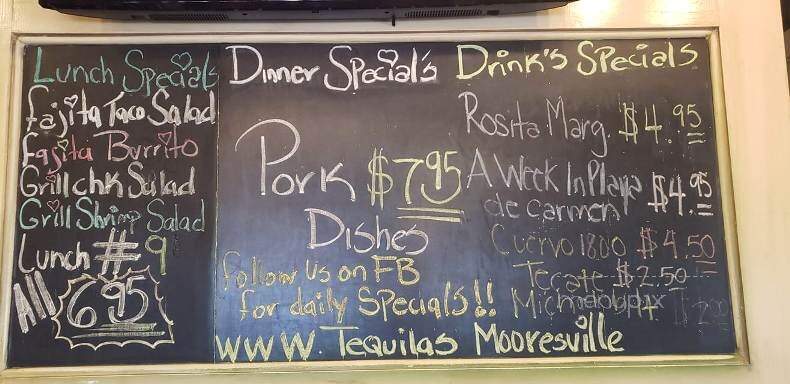 Lunch Specials
Fajita Taco Salad
Fajita Burrito
Grill chk Salad
Grill Shrimp Salad
Lunch # 9
All 6.95
Dinner Special's
Pork $7.95
Dishes
Follow us on FB
for daily Specials!!
WWW. Tequilas Mooresville
Drink's Specials
Rosita Marg. $4.95
A Week In Playa $4.95
de carmen
Cuervo 1800 $4.50
Tecate $2.50